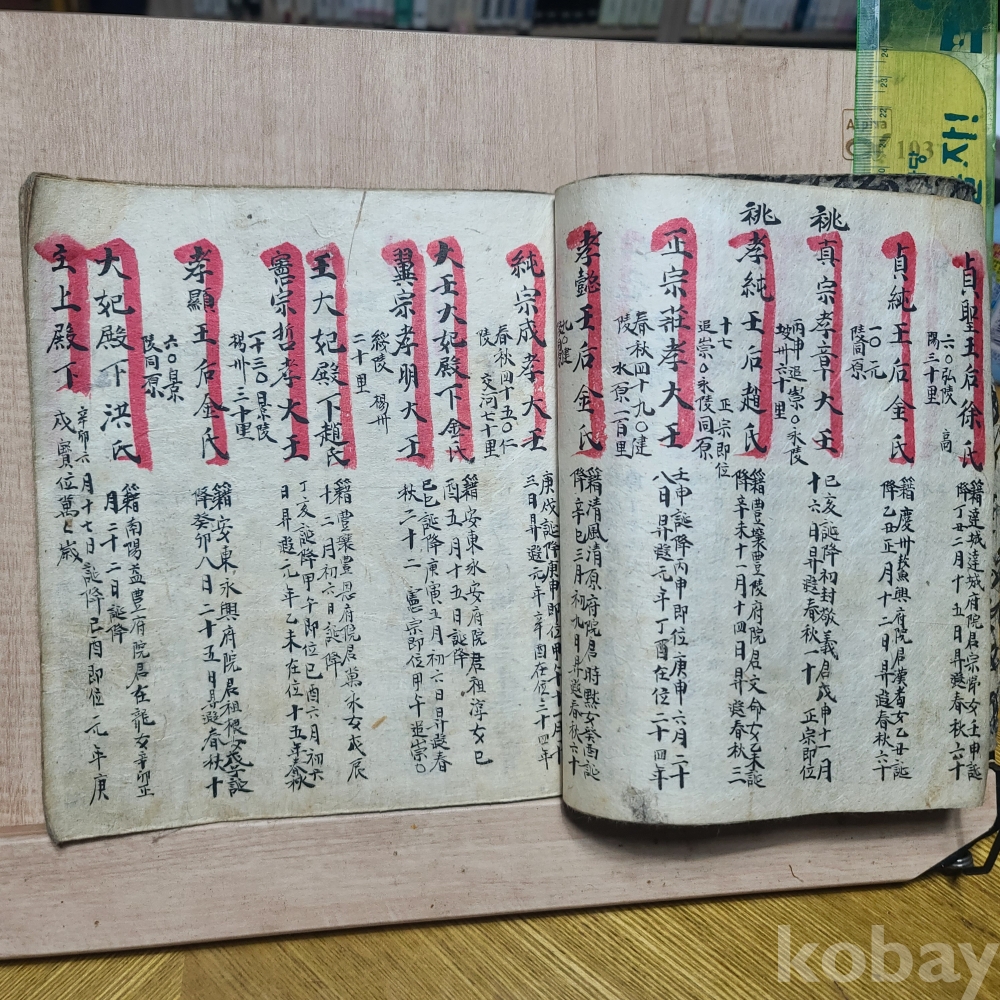 貞聖王后徐氏
六○弘陵 高
陽三十里
籍達城達城府院君宗悌女壬申誕
降丁丑二月十五日昇遐春秋六十
貞純王后金氏
一○元
陵同原
籍慶州鰲興府院君漢耉女乙丑誕
降乙丑正月十二日昇遐春秋六十
祧 真宗孝章大王
丙申追崇○永陵
坡州六十里
己亥誕降初封敬義君戊申十一月
十六日昇遐春秋一十 正宗即位
祧 孝純王后趙氏
十七 正宗即位
追崇○永陵同原
籍豊壤豊陵府院君文命女乙未誕
降辛未十一月十四日昇遐春秋三
正宗莊孝大王
春秋四十九○健
陵 水原一百里
壬申誕降丙申即位庚申六月二十
八日昇遐元年丁酉在位二十四年
孝懿王后金氏
籍清風清原府院君時默女癸酉誕
降辛巳三月初九日昇遐春秋六十
純宗成孝大王
春秋四十五○仁
陵 交河七十里
庚戌誕降庚申即位甲午十一月十
三日昇遐元年辛酉在位三十四年
大王大妃殿下金氏
籍安東永安府院君祖淳女己
酉五月十五日誕降
翼宗孝明大王
綏陵 楊州
二十里
己巳誕降庚寅五月初六日昇遐春
秋二十二 憲宗即位甲午追崇○
王大妃殿下趙氏
籍豊壤豊恩府院君萬永女戊辰
十二月初六日誕降
憲宗哲孝大王
一十三○景陵
楊州 三十里
丁亥誕降甲午即位己酉六月初六
日昇遐元年乙未在位十五年春秋
孝顯王后金氏
六○景
陵同原
籍安東永興府院君祖根女戊子誕
降癸卯八月二十五日昇遐春秋十
大妃殿下洪氏
籍南陽益豊府院君在龍女辛卯正
月二十二日誕降
主上殿下
辛卯六月十七日誕降己酉即位元年庚
戌寶位萬萬歲
kobay